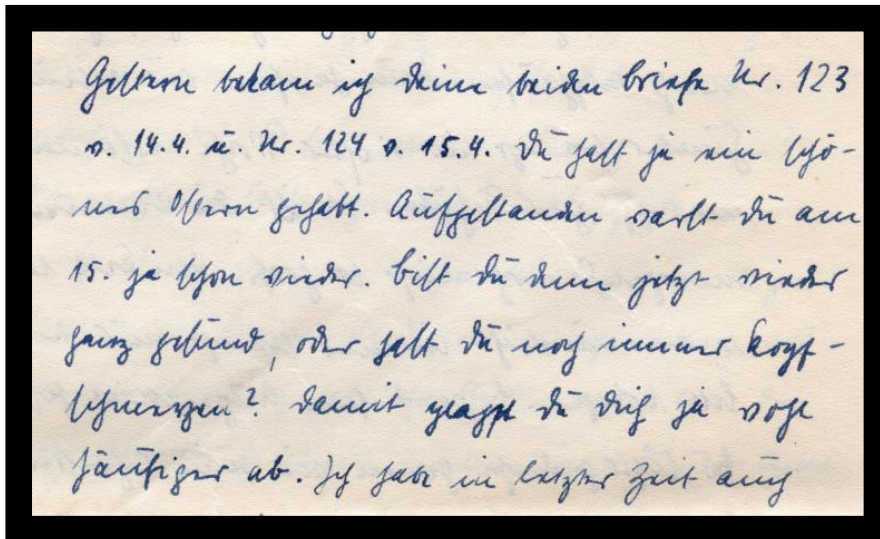 Gestern bekam ich Deine beiden Briefe Nr. 123
v. 14.4. u. Nr. 124 v. 15.4. Du hast ja ein schö-
nes Ostern gehabt. Aufgestanden warst Du am
15. ja schon wieder. Bist Du denn jetzt wieder
ganz gesund, oder hast Du noch immer Kopf-
schmerzen? Damit plagst Du Dich ja wohl
häufiger ab. Ich habe in letzter Zeit auch